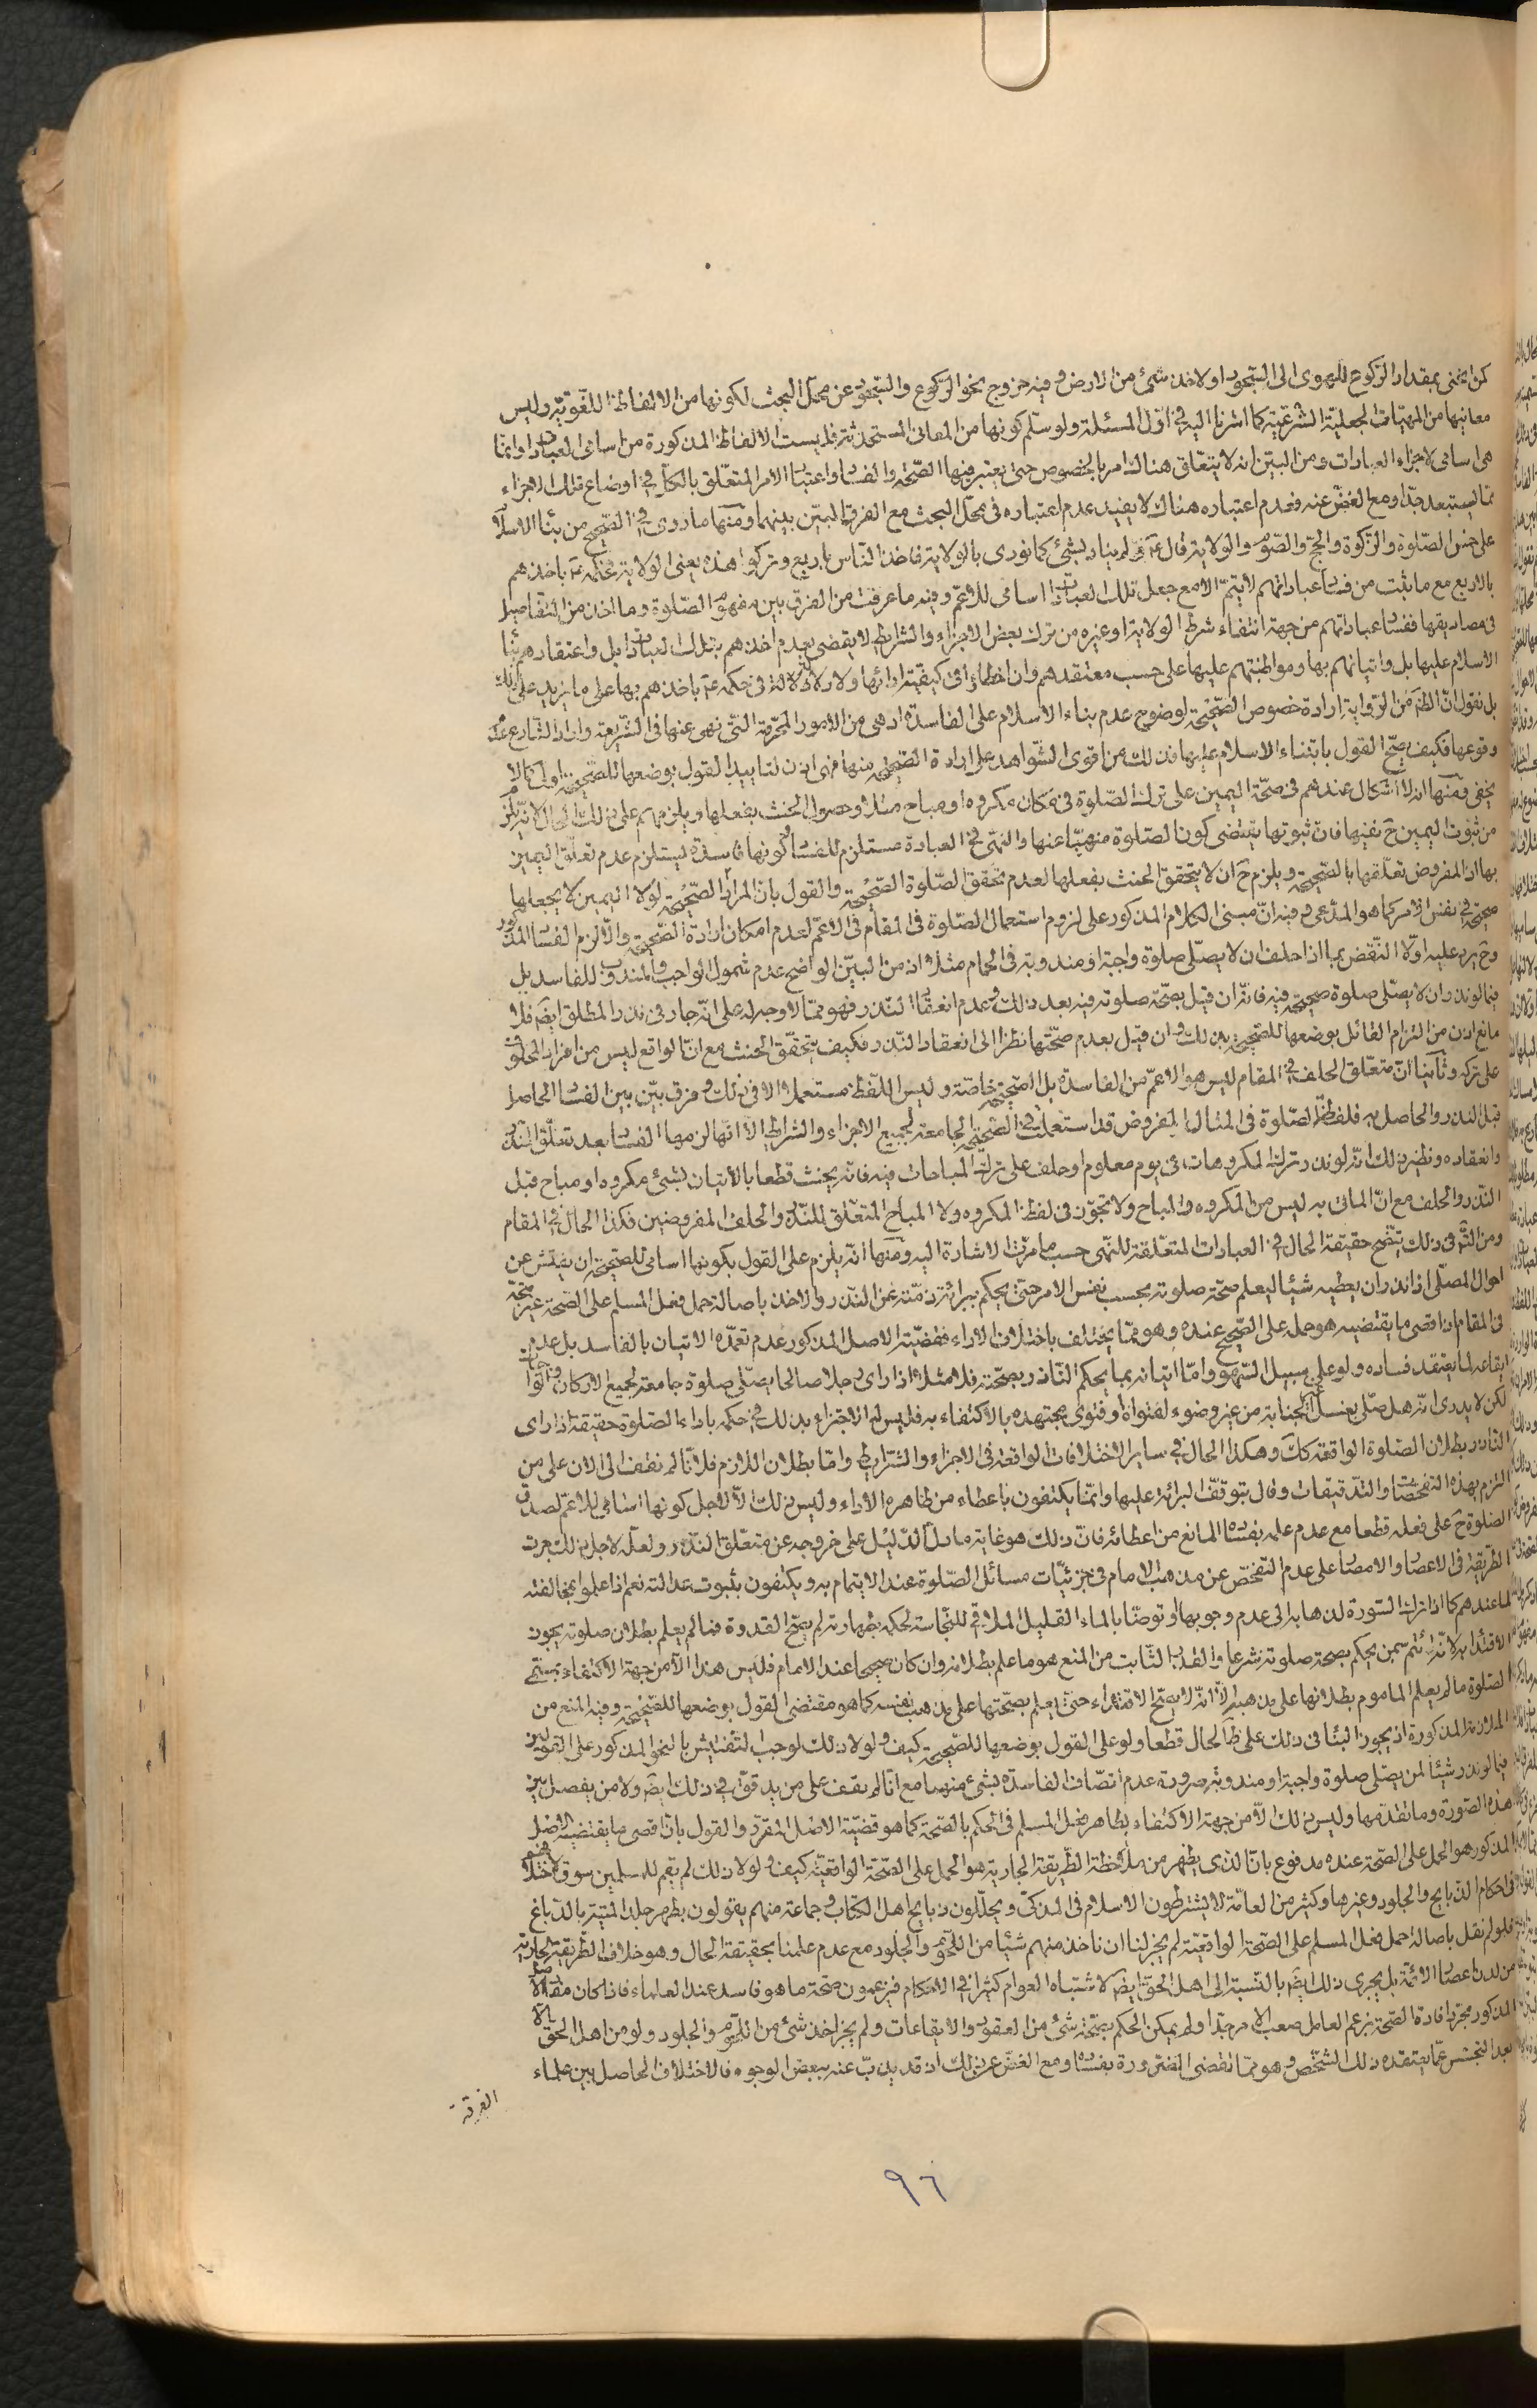 كمن انحنى بمقدار الركوع للهوى الى السجود او لاخذ شئ من الارض وفيه خروج نحو الركوع والسجود عن محل البحث لكونها من الالفاظ اللغوية وليس
معانيها من المهيات الجعلية الشرعية كما اشرنا اليه في اول المسئلة ولو سلم كونها من المعانى المستحدثة فليست الالفاظ المذكورة من اسامى العبادات وانما
هى اسامى لاجزاء العبادات ومن البين انه لا يتعلق هناك امر بالخصوص حتى يعتبر فيها الصحة والفساد واعتبار الامر المتعلق بالكل في اوضاع تلك الاجزاء
مما يستبعد جدا ومع الغض عنه فعدم اعتباره هناك لا يفيد عدم اعتباره فى محل البحث مع الفرق البين بينهما ومنها ما روى في الصحيح من بناء الاسلام
على خمس الصلوة والزكوة والحج والصوم والولاية قال ع ولم يناد بشئ كما نودى بالولاية فاخذ الناس باربع وتركوا هذه يعنى الولاية فحكمه ع باخذهم
بالاربع مع ما ثبت من فساد عباداتهم لا يتم الا مع جعل تلك العبادات اسامى للاعم وفيه ما عرفت من الفرق بين مفهوم الصلوة وما اخذ من التفاصيل
فى مصاديقها ففساد عباداتهم من جهة انتفاء شرط الولاية او غيره من ترك بعض الاجزاء والشرائط لا يقضى بعدم اخذهم بتلك العبادات بل واعتقادهم بناء
الاسلام عليها بل واتيانهم بها ومواظبتهم عليها على حسب معتقدهم وان اخطاؤا فى كيفية ادائها ولا دلالة فى حكمه ع باخذهم بها على ما يزيد على ذلك
بل نقول ان الظ من الرواية ارادة خصوص الصحيحة لوضوح عدم بناء الاسلام على الفاسدة اذ هى من الامور المحرمة التى نهى عنها فى الشريعة واراد الشارع عدم
وقوعها فكيف يصح القول بابتناء الاسلام عليها فذلك من اقوى الشواهد على ارادة الصحيحة منها فهى اذن لتاييد القول بوضعها للصحيحة اولى كما لا
يخفى ومنها انه لا اشكال عندهم فى صحة اليمين على ترك الصلوة فى مكان مكروه او مباح مثلا وحصول الحنث بفعلها ويلزمهم على ذلك المحال لانه يلزم
من ثبوت اليمين ح نفيها فان ثبوتها يقتضى كون الصلوة منهيا عنها والنهى في العبادة مستلزم للفساد وكونها فاسدة يستلزم عدم تعلق اليمين
بها اذ المفروض تعلقها بالصحيحة ويلزم ح ان لا يتحقق الحنث بفعلها لعدم تحقق الصلوة الصحيحة والقول بان المراد الصحيحة لولا اليمين لا يجعلها
صحيحة في نفس الامر كما هو المدعى وفيه ان مبنى الكلام المذكور على لزوم استعمال الصلوة فى المقام فى الاعم لعدم امكان ارادة الصحيحة والا لزم الفساد المذكور
وح يرد عليه اولا النقض بما اذا حلف ان لا يصلى صلوة واجبة او مندوبة فى الحمام مثلا اذ من البين الواضح عدم شمول الواجب والمندوب للفاسد بل
فيما لو نذر ان لا يصلى صلوة صحيحة فيه فانه ان قيل بصحة صلوته فيه بعد ذلك وعدم انعقاد النذر فهو مما لا وجه له على انه جار فى نذر المطلق ايض فلا
مانع اذن من التزام القائل بوضعها للصحيحة بذلك وان قيل بعدم صحتها نظرا الى انعقاد النذر فكيف يتحقق الحنث مع ان الواقع ليس من افراد المحلوف
على تركه وثانيا ان متعلق الحلف في المقام ليس هو الاعم من الفاسدة بل الصحيحة خاصة وليس اللفظ مستعملا الا فى ذلك وفرق بين بين الفساد الحاصل
قبل النذر والحاصل به فلفظ الصلوة فى المثال المفروض قد استعملت في الصحيحة الجامعة لجميع الاجزاء والشرائط الا انها لزمها الفساد بعد تعلق النذر
وانعقاده ونظير ذلك انه لو نذر ترك المكروهات في يوم معلوم او حلف على ترك المباحات فيه فانه يحنث قطعا بالاتيان بشئ مكروه او مباح قبل
النذر والحلف مع ان الماتى به ليس من المكروه والمباح ولا تجوز فى لفظ المكروه ولا المباح المتعلق للنذر والحلف المفروضين فكذا الحال في المقام
ومن التامل فى ذلك يتضح حقيقة الحال في العبادات المتعلقة للنهى حسب ما مرت الاشارة اليه ومنها انه يلزم على القول بكونها اسامى للصحيحة ان يفتش عن
احوال المصلى اذا نذر ان يعطيه شيئا ليعلم صحة صلوته بحسب نفس الامر حتى يحكم ببرائة ذمته عن النذر والاخذ باصالة حمل فعل المسلم على الصحة غير متجه
فى المقام اذ اقصى ما يقتضيه هو حمله على الصحيح عنده وهو مما يختلف باختلاف الاراء فقضية الاصل المذكور عدم تعمده الاتيان بالفاسد بل عدم
ايقاعه لما يعتقد فساده ولو على سبيل السهو واما اتيانه بما يحكم الناذر بصحته فلا مثلا اذا راى رجلا صالحا يصلى صلوة جامعة لجميع الاركان والواجبات
لكن لا يدرى انه هل صلى بغسل الجنابة من غير وضوء لفتواه او فتوى مجتهده بالاكتفاء به فليس له الاجتزاء بذلك في حكمه باداء الصلوة حقيقة اذا راى
الناذر بطلان الصلوة الواقعة كك وهكذا الحال في ساير الاختلافات الواقعة فى الاجزاء والشرايط واما بطلان اللازم فلانا لم نقف الى الان على من
التزم بهذه التفحصات والتدقيقات وقال بتوقف البرائة عليها وانما يكتفون باعطاء من ظاهره الاداء وليس ذلك الا لاجل كونها اسامى للاعم لصدق
الصلوة ح على فعله قطعا مع عدم علمه بفساده المانع من اعطائه فان ذلك هو غاية ما دل الدليل على خروجه عن متعلق النذر ولعله لاجل ذلك جرت
الطريقة فى الاعصار والامصار على عدم التفحص عن مذهب الامام فى جزئيات مسائل الصلوة عند الايتمام به ويكتفون بثبوت عدالته نعم اذا علموا بمخالفته
لما عندهم كما اذا ترك السورة لذهابه الى عدم وجوبها او توضا بالماء القليل الملاقى للنجاسة لحكمه بطهارته لم يصح القدوة فما لم يعلم بطلان صلوته يجوز
الاقتداء به لانه ائتم بمن يحكم بصحة صلوته شرعا والقدر الثابت من المنع هو ما علم بطلانه وان كان صحيحا عند الامام فليس هذا الا من جهة الاكتفاء بمسمى
الصلوة ما لم يعلم الماموم بطلانها على مذهبه لا انه لا يصح الاقتداء حتى يعلم بصحتها على مذهب نفسه كما هو مقتضى القول بوضعها للصحيحة وفيه المنع من
الملازمة المذكورة اذ يجوز البناء فى ذلك على ظ الحال قطعا ولو على القول بوضعها للصحيحة كيف ولولا ذلك لوجب التفتيش بالنحو المذكور على القولين
فيما لو نذر شيئا لمن يصلى صلوة واجبة او مندوبة ضرورة عدم اتصاف الفاسدة بشئ منهما مع انا لم نقف على من يدقق في ذلك ايض ولا من يفصل بين
هذه الصورة وما تقدمها وليس ذلك الا من جهة الاكتفاء بظاهر فعل المسلم فى الحكم بالصحة كما هو قضية الاصل المقرر والقول بان اقصى ما يقتضيه الاصل
المذكور هو الحمل على الصحة عنده مدفوع بان الذى يظهر من ملاحظة الطريقة الجارية هو الحمل على الصحة الواقعية كيف ولولا ذلك لم يقم للمسلمين سوق لاختلافهم
فى احكام الذبايح والجلود وغيرها وكثير من العامة لا يشترطون الاسلام فى المذكى ويحللون ذبايح اهل الكتاب وجماعة منهم يقولون بطهر جلد الميتة بالدباغ
فلو لم نقل باصالة حمل فعل المسلم على الصحة الواقعية لم يجز لنا ان ناخذ منهم شيئا من اللحوم والجلود مع عدم علمنا بحقيقة الحال وهو خلاف الطريقة الجارية
من لدن اعصار الائمة بل يجرى ذلك ايض بالنسبة الى اهل الحق ايض لاشتباه العوام كثيرا في الاحكام فيزعمون صحة ما هو فاسد عند العلماء فاذا كان مفاد الاصل
المذكور مجرد افادة الصحة بزعم العامل صعب الامر جدا ولم يمكن الحكم بصحة شئ من العقود والايقاعات ولم يجز اخذ شئ من اللحوم والجلود ولو من اهل الحق الا
بعد التجسس عما يعتقده ذلك الشخص وهو مما تقضى الضرورة بفساده ومع الغض عن ذلك اذ قد يذب عنه ببعض الوجوه فالاختلاف الحاصل بين علماء
الفرقة
٩٦